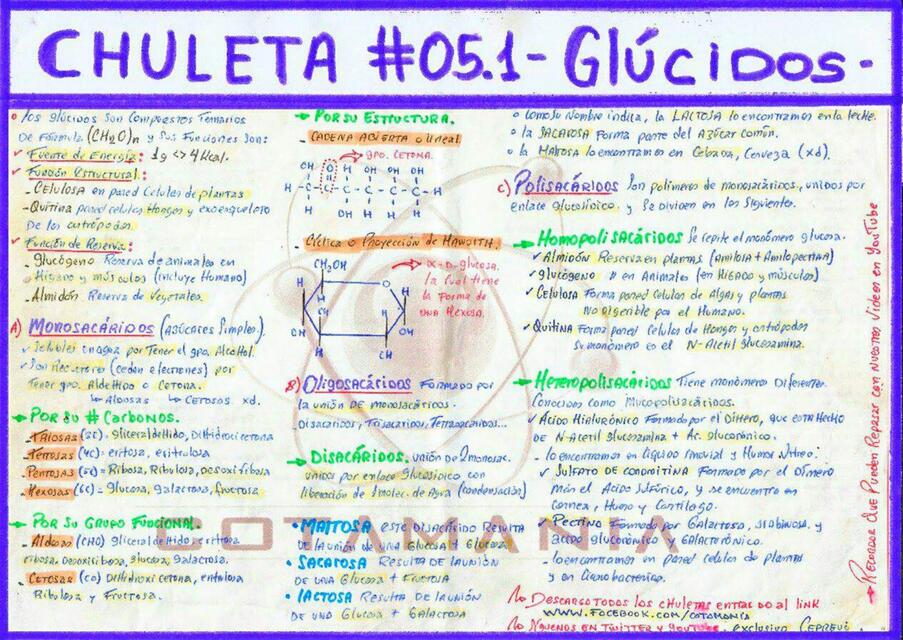 CHULETA #05.1 - Glúcidos -
• los glúcidos son compuestos Ternarios
DE Fórmula (CH2O)n y sus Funciones son:
✓ Fuente de Energía: 1g <> 4 Kcal.
✓ Función Estructural:
- Celulosa en pared Celular de plantas
- Quitina pared celular Hongos y exoesqueleto
De los artrópodos
✓ Función de Reserva:
- Glucógeno Reserva de animales en
Hígado y músculos (incluye Humano)
- Almidón Reserva de Vegetales.
A) MONOSACÁRIDOS (azúcares Simples).
✓ Solubles en agua por Tener el gpo. Alcohol.
✓ Son Reductores (ceden electrones) por
Tener gpo. Aldehído o Cetona.
↳ Aldosas ↳ Cetosas xd.
→ Por su # Carbonos.
- Triosas (3c) = gliceraldehído, Dihidroxicetona
- Tetrosas (4c) = eritrosa, eritrulosa
- Pentosas (5c) = Ribosa, Ribulosa, desoxirribosa
- Hexosas (6c) = glucosa, galactosa, fructosa
→ Por Su Grupo Funcional.
- Aldosas (CHO) gliceraldehído, eritrosa
ribosa, Desoxiribosa, glucosa, galactosa.
- Cetosas (co) Dihidroxicetona, eritrulosa
Ribulosa y Fructosa.
→ Por su Estructura.
- CADENA ABIERTA o lineal
→ gpo. CETONA.
OH O H OH OH
H - C - C - C - C - C - C - H
H OH H H H
- Cíclica o Proyección de HAWORTH.
CH2OH
→ α-D-glucosa.
la cual tiene
la Forma de
UNA HEXOSA.
H O H
OH OH
H OH
B) Oligosacáridos Formados por
la unión DE monosacáridos.
Disacáridos, Trisacáridos, Tetrasacáridos...
→ DISACÁRIDOS. unión de 2 monosac.
unidos por enlace Glucosídico con
liberación de 1 molec. de Agua (condensación)
• MALTOSA este disacárido Resulta
de la unión de una Glucosa + Glucosa
• SACAROSA Resulta de la unión
DE UNA Glucosa + Fructosa
• LACTOSA Resulta de la unión
DE UNA Glucosa + Galactosa
○ Como su Nombre indica, la LACTOSA lo encontramos en la leche.
○ la SACAROSA Forma parte del Azúcar Común.
○ la Maltosa lo encontramos en Cebada, Cerveza (xd).
C) POLISACÁRIDOS Son polímeros de monosacáridos, unidos por
enlace glucosídico. y Se dividen en los Siguientes.
→ Homopolisacáridos Se repite el monómero glucosa.
✓ Almidón Reserva en plantas (Amilosa + Amilopectina)
✓ glucógeno " en Animales (en Hígado y músculos)
✓ Celulosa Forma pared Celular de Algas y plantas
No digerible por el Humano.
✓ Quitina Forma pared Celular de Hongos y artrópodos
Su monómero es el N-Acetil Glucosamina.
→ Heteropolisacáridos Tiene monómero Diferente.
Conocidos como Mucopolisacáridos.
✓ Ácido Hialurónico Formado por el Dímero, que está Hecho
DE N-Acetil glucosamina + Ac. glucorónico.
- lo encontramos en líquido sinovial y Humor Vítreo.
✓ SULFATO DE CONDROITINA Formado por el Dímero
más el Ácido Sulfúrico, y se encuentra en
Cornea, Hueso y Cartílago.
✓ Pectina Formada por Galactosa, arabinosa, y
ácido glucorónico y Galactorónico.
- lo encontramos en pared celular de plantas
y en Cianobacterias.
→ DESCARGA TODOS los CHULETAS ENTRANDO al link
WWW.FACEBOOK.COM/COTAMANIA
→ SÍGUENOS EN TWITTER y YOUTUBE. exclusivo CEPREVI.
→ RECORDAR QUE PUEDEN REPASAR CON NUESTROS VIDEOS EN YOUTUBE
COTAMANIA